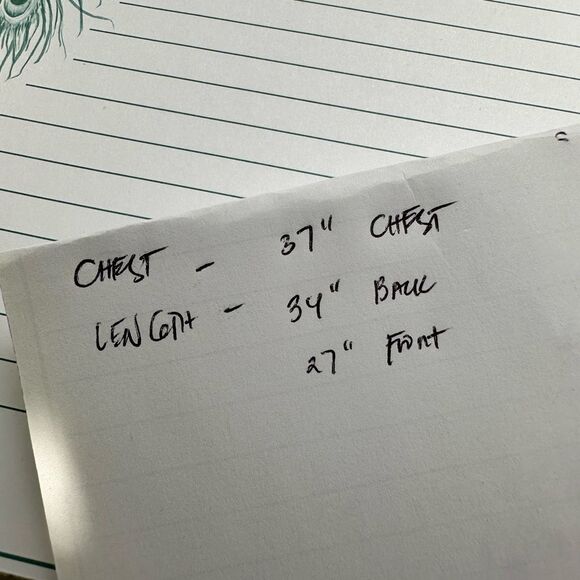 CHEST - 37" CHEST
LENGTH - 34" BACK
27" Front